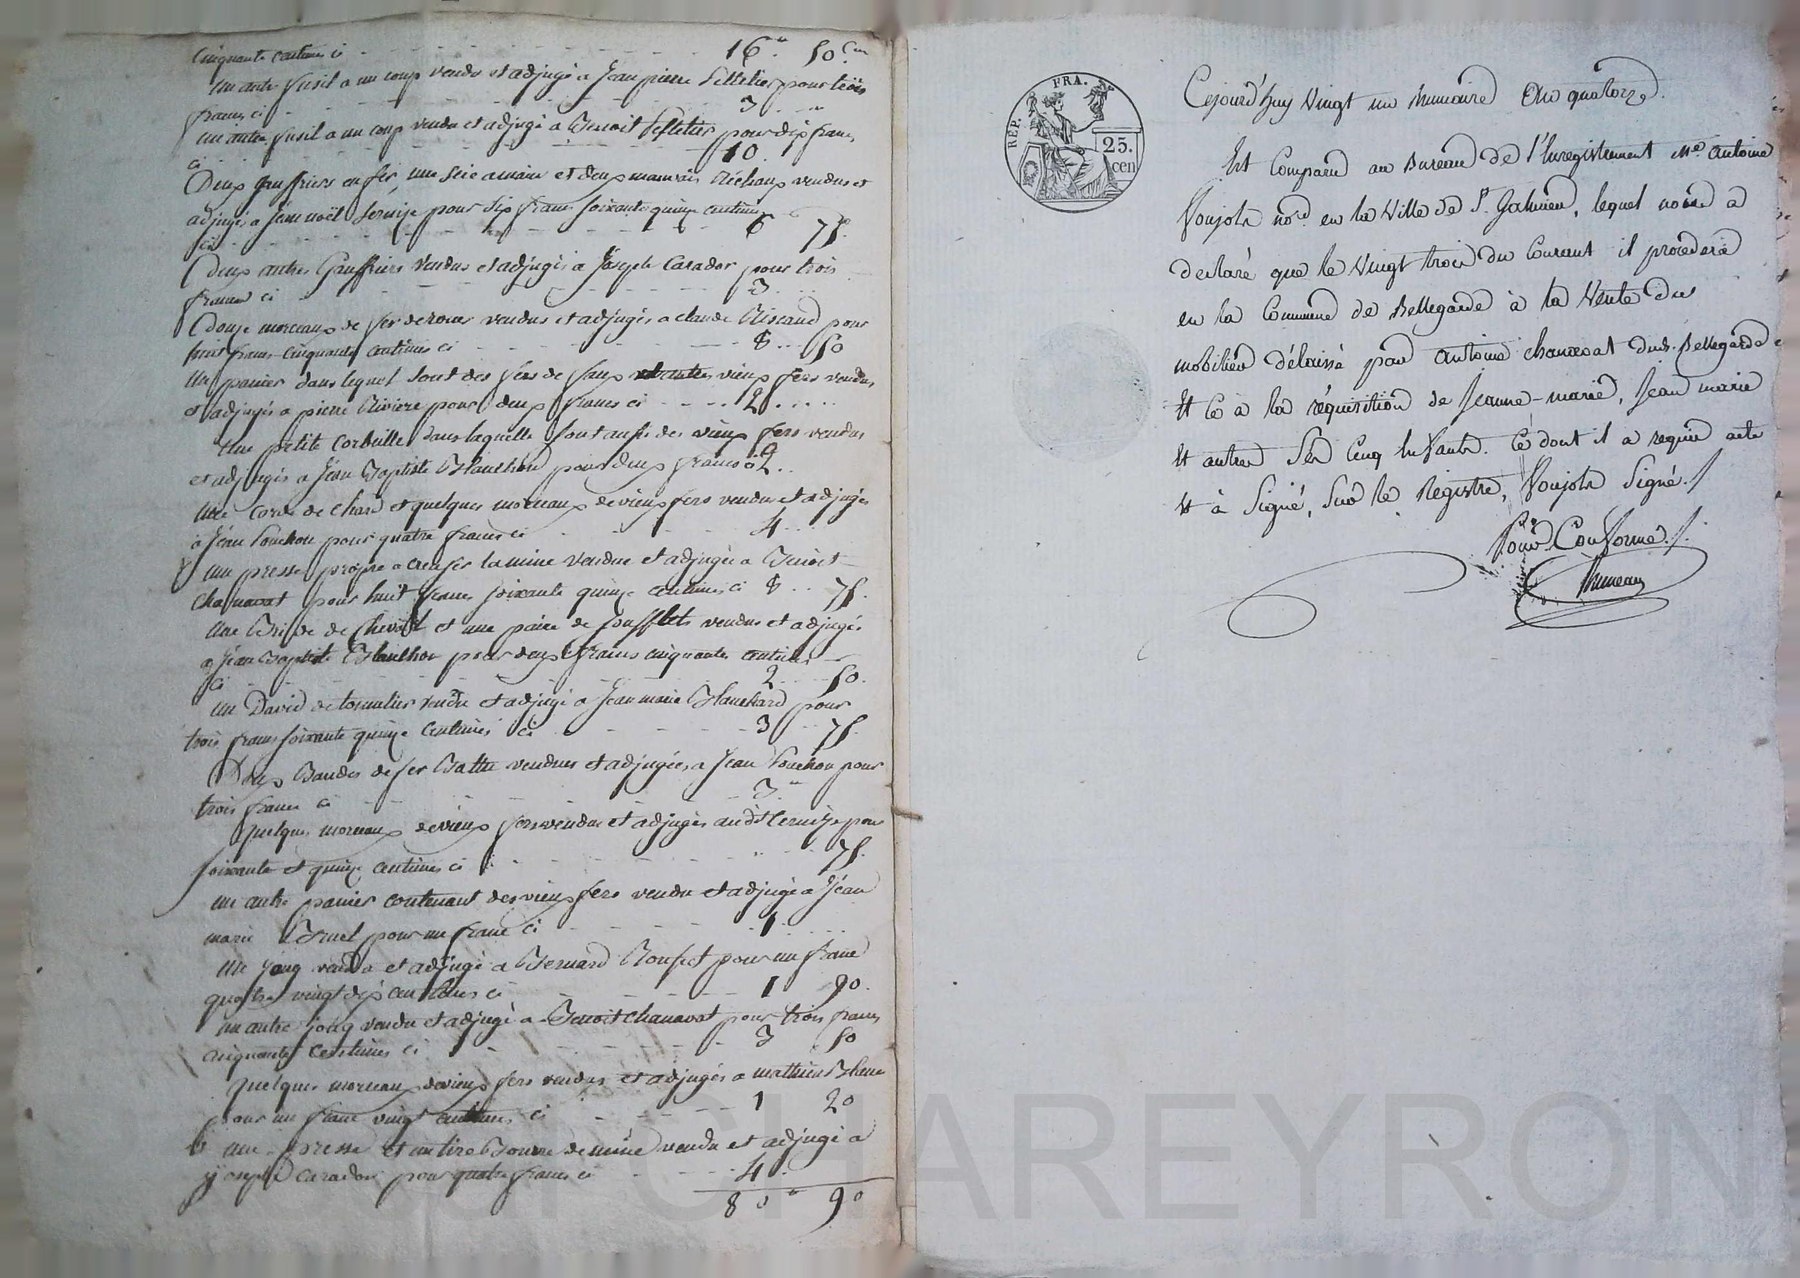 Cinquante centimes ci 16 50 cm
un autre fusil a un coup vendu et adjugé a Jean pierre Pelletier pour trois
francs ci 3
un autre fusil a un coup vendu et adjugé a Benoit Pelletier pour dix francs
ci 10
Deux gauffriers en fer, une scie a main et deux mauvais Réchaux vendus et
adjugés a Jean noël pour six francs soixante quinze centimes
ci 6 75.
Deux autres Gauffriers vendus et adjugés a Joseph Carador pour trois
francs ci 3
Douze morceaux de fer de roues vendus et adjugés a claude pour
huit francs cinquante centimes ci 8 50
Un panier dans lequel sont des fers de vieux fers vendus
et adjugés a pierre Riviere pour deux francs ci 2
Une petite Corbeille dans laquelle sont aussi des vieux fers vendus
et adjugés a Jean Baptiste Blanchon pour deux francs ci 2
Une Corde de Char et quelques morceaux de vieux fers vendus et adjugés
a Jean Ponchon pour quatre francs ci 4
une presse propre a creuser la mine vendue et adjugée a Benoit
Chanavat pour huit francs soixante quinze centimes ci 8 75.
Une Bride de Cheval et une paire de soufflets vendus et adjugés
a Jean Baptiste Blanchon pour deux francs cinquante centimes
ci 2 50.
un David de tonnelier vendu et adjugé a Jean marie Blanchard pour
trois francs soixante quinze Centimes ci 3 75.
Deux Bandes de fer Battu vendues et adjugées a Jean Ponchon pour
trois francs ci 3
Quelques morceaux de vieux fers vendus et adjugés audit pour
soixante et quinze centimes ci 75.
un autre panier contenant des vieux fers vendu et adjugé a Jean
marie Brunel pour un franc ci 1
Un joug vendu et adjugé a Bernard pour un franc
quatre vingt dix centimes ci 1 90.
un autre joug vendu et adjugé a Benoit Chanavat pour trois francs
cinquante centimes ci 3 50
Quelques morceaux de vieux fers vendus et adjugés a mathieu
pour un franc vingt centimes ci 1 20
une presse et un tire Bourre de mine vendu et adjugé a
joseph Carador pour quatre francs ci 4
80 90
REP. FRA.
25.
cen
Cejourd'huy Vingt un Brumaire An quatorze.
Est Comparu au Bureau de l'Enregistrement Me. Antoine
Poujols nore. en la Ville de St. Galmier, lequel nore. a
déclaré que le Vingt trois du Courant il procédera
en la Commune de Bellegarde à la Vente du
mobilier délaissé par Antoine Chanavat dud. Bellegarde
Et Ce à la réquisition de Jeanne-marie, Jean marie
Et autres Ses Cinq Enfants. Ce dont il a requis acte
Et à Signé, Sur le Registre, Poujols Signé./
Pour Conforme./.
Bruneau
CHAREYRON